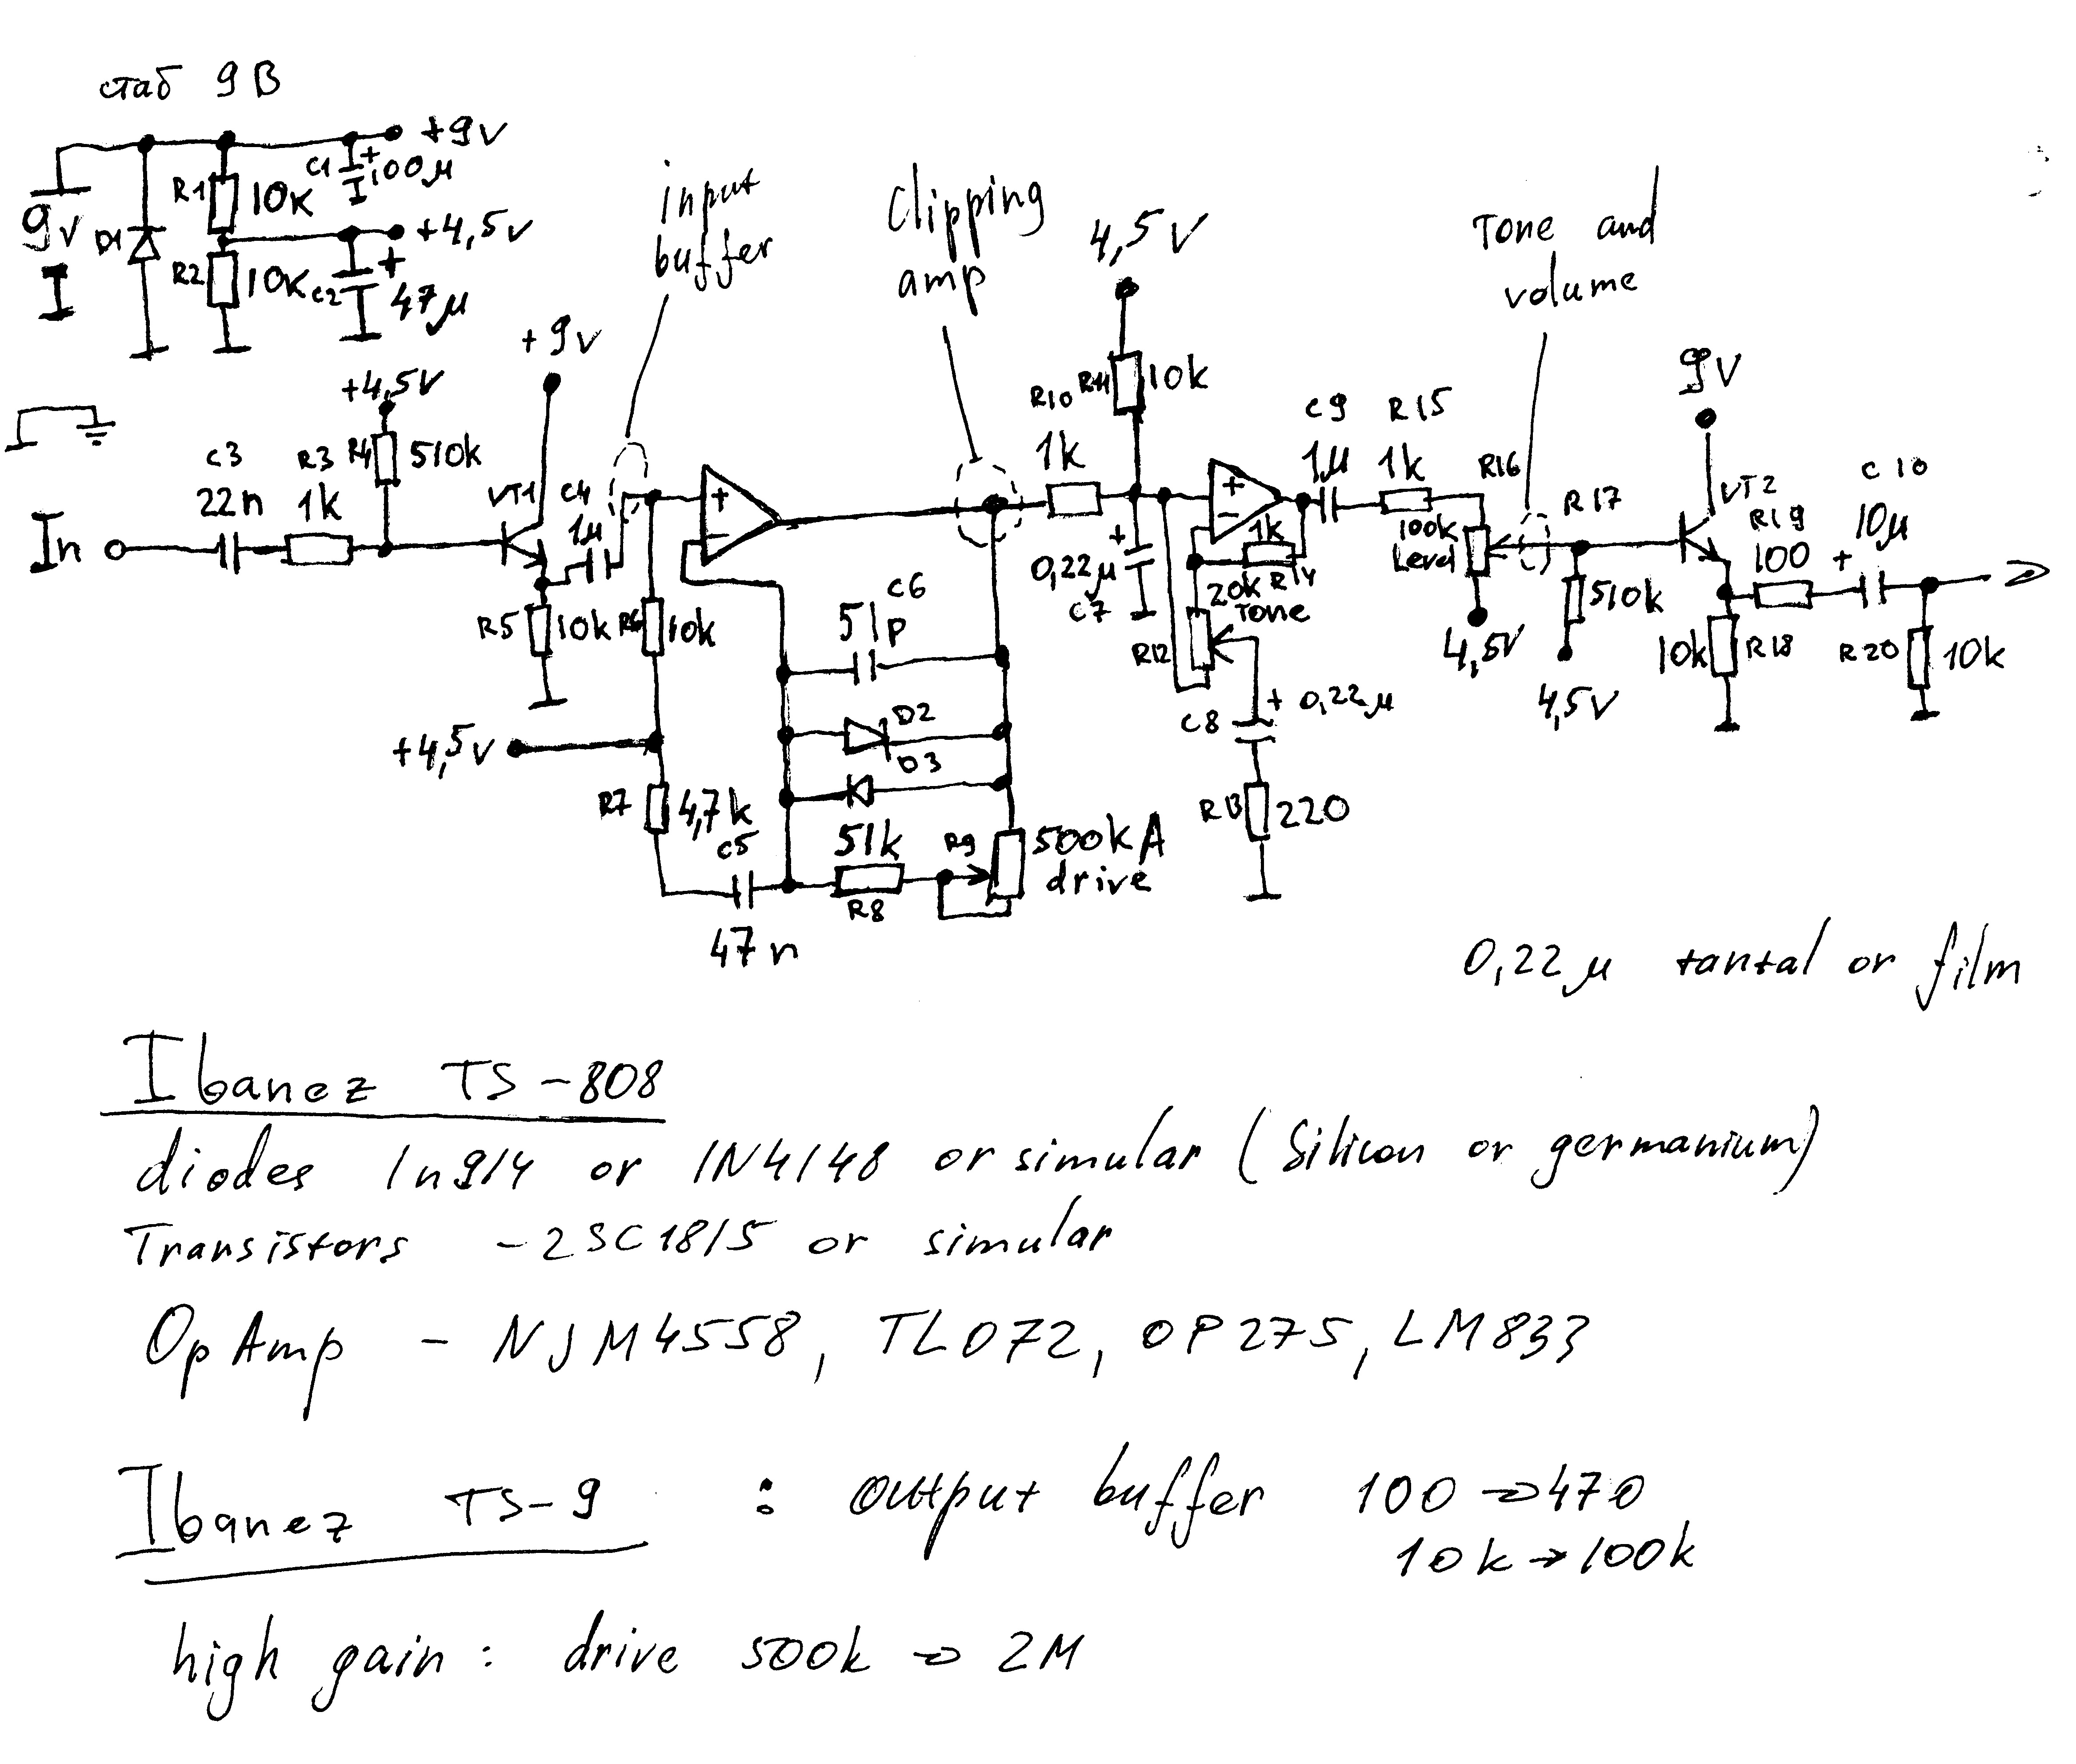 стаб 9В
+9v
C1 + 100μ
R1 10k
9v D1
+4,5v
R2 10k C2 + 47μ
input buffer
Clipping amp
4,5V
Tone and volume
+9v
+4,5V
R4 510k
C3 22n
R3 1k
In
VT1
C4 1μ
R5 10k
R6 10k
+
−
R10 1k
R11 10k
+ 0,22μ C7
+
−
1k R14
20k Tone
R12
C9 1μ
R15 1k
R16 100k Level
4,5V
R17 510k
4,5V
9V
VT2
R19 100
C10 + 10μ
10k R18
R20 10k
C6 51p
D2
D3
+4,5v
R7 4,7k
C5 47n
51k R8
R9 500kA drive
C8 + 0,22μ
R13 220
0,22μ tantal or film
Ibanez TS-808
diodes 1n914 or 1N4148 or simular (Silicon or germanium)
Transistors - 2SC1815 or simular
OpAmp - NJM4558, TL072, OP275, LM833
Ibanez TS-9 : output buffer 100 → 470
10k → 100k
high gain : drive 500k → 2M